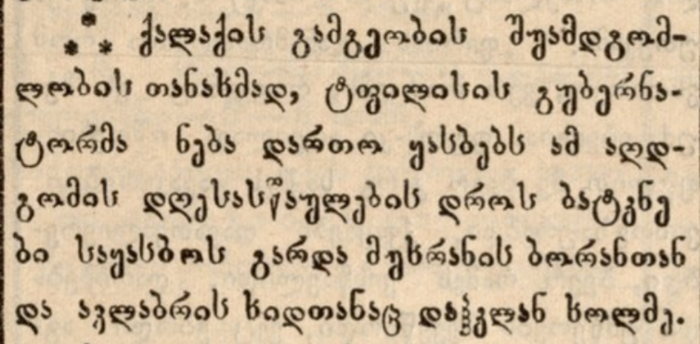 ⁂ ქალაქის გამგეობის შუამდგომ-
ლობის თანახმად, ტფილისის გუბერნა-
ტორმა ნება დართო ყასბებს ამ აღდ-
გომის დღესასწაულების დროს ბატკნე
ბი საყასბოს გარდა მუხრანის ბორანთან
და ავლაბრის ხიდთანაც დაჰკლან ხოლმე.